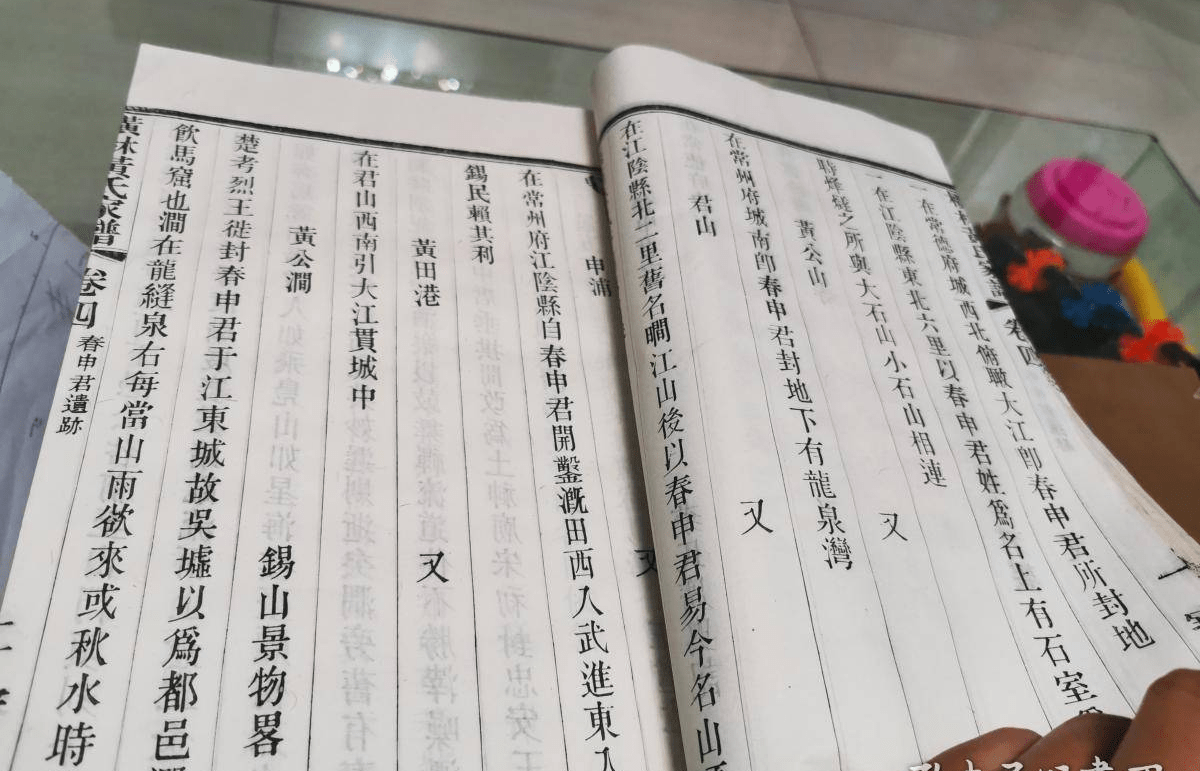 卷四
一在常德府城西北俯瞰大江卽春申君所封地
一在江陰縣東北六里以春申君姓爲名上有石室
時烽燧之所與大石山小石山相連
黃公山 又
在常州府城南卽春申君封地下有龍泉灣
君山 又
在江陰縣北二里舊名瞷江山後以春申君易今名山
申浦 又
在常州府江陰縣自春申君開鑿漑田西入武進東入
錫民賴其利
黃田港 又
在君山西南引大江貫城中
黃公澗 錫山景物畧
楚考烈王徙封春申君于江東城故吳墟以爲都邑
飮馬窟也澗在龍縫泉右每當山雨欲來或秋水時
橫林黃氏家譜 卷四 春申君遺跡